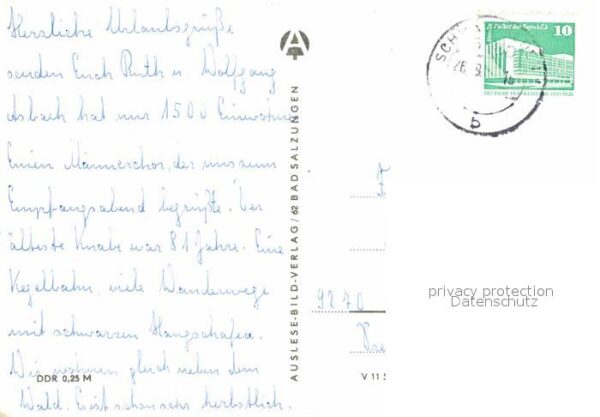 Herzliche Urlaubsgrüße
senden Euch Ruth u. Wolfgang
Asbach hat nur 1500 Einwohner
Einen Männerchor, der uns zum
Empfangsabend begrüßte. Der
älteste Knabe war 81 Jahre. Eine
Kegelbahn, viele Wanderwege
mit schwarzen
Wir wohnen gleich neben dem
Wald. Es ist schon sehr herbstlich.
DDR 0,25 M
AUSLESE-BILD-VERLAG / 62 BAD SALZUNGEN
A
SCHM
28.
b
Palast der Republik
10
DEUTSCHE DEMOKRATISCHE REPUBLIK
9270
V 11 5
privacy protection
Datenschutz